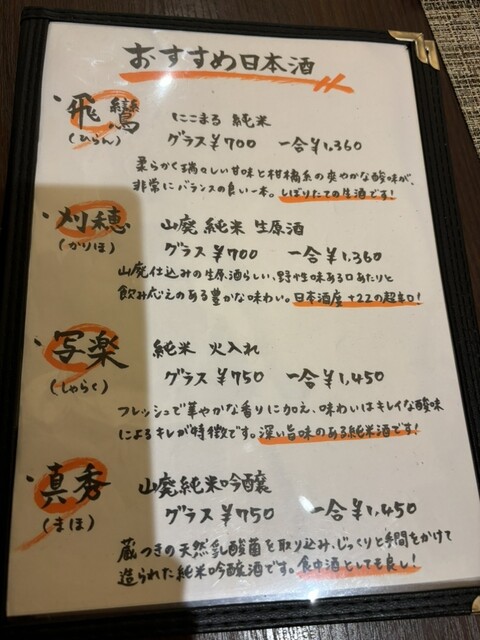 おすすめ日本酒
・飛鸞 にこまる 純米
(ひらん) グラス¥700 一合¥1,360
柔らかく瑞々しい甘味と柑橘系の爽やかな酸味が、
非常にバランスの良い一本。しぼりたての生酒です!
・刈穂 山廃 純米 生原酒
(かりほ) グラス¥700 一合¥1,360
山廃仕込みの生原酒らしい、野性味ある口あたりと
飲み応えのある豊かな味わい。日本酒度+22の超辛口!
・写楽 純米 火入れ
(しゃらく) グラス¥750 一合¥1,450
フレッシュで華やかな香りに加え、味わいはキレイな酸味
によるキレが特徴です。深い旨味のある純米酒です!
・真秀 山廃純米吟醸
(まほ) グラス¥750 一合¥1,450
蔵つきの天然乳酸菌を取り込み、じっくりと手間をかけて
造られた純米吟醸酒です。食中酒としても良し!